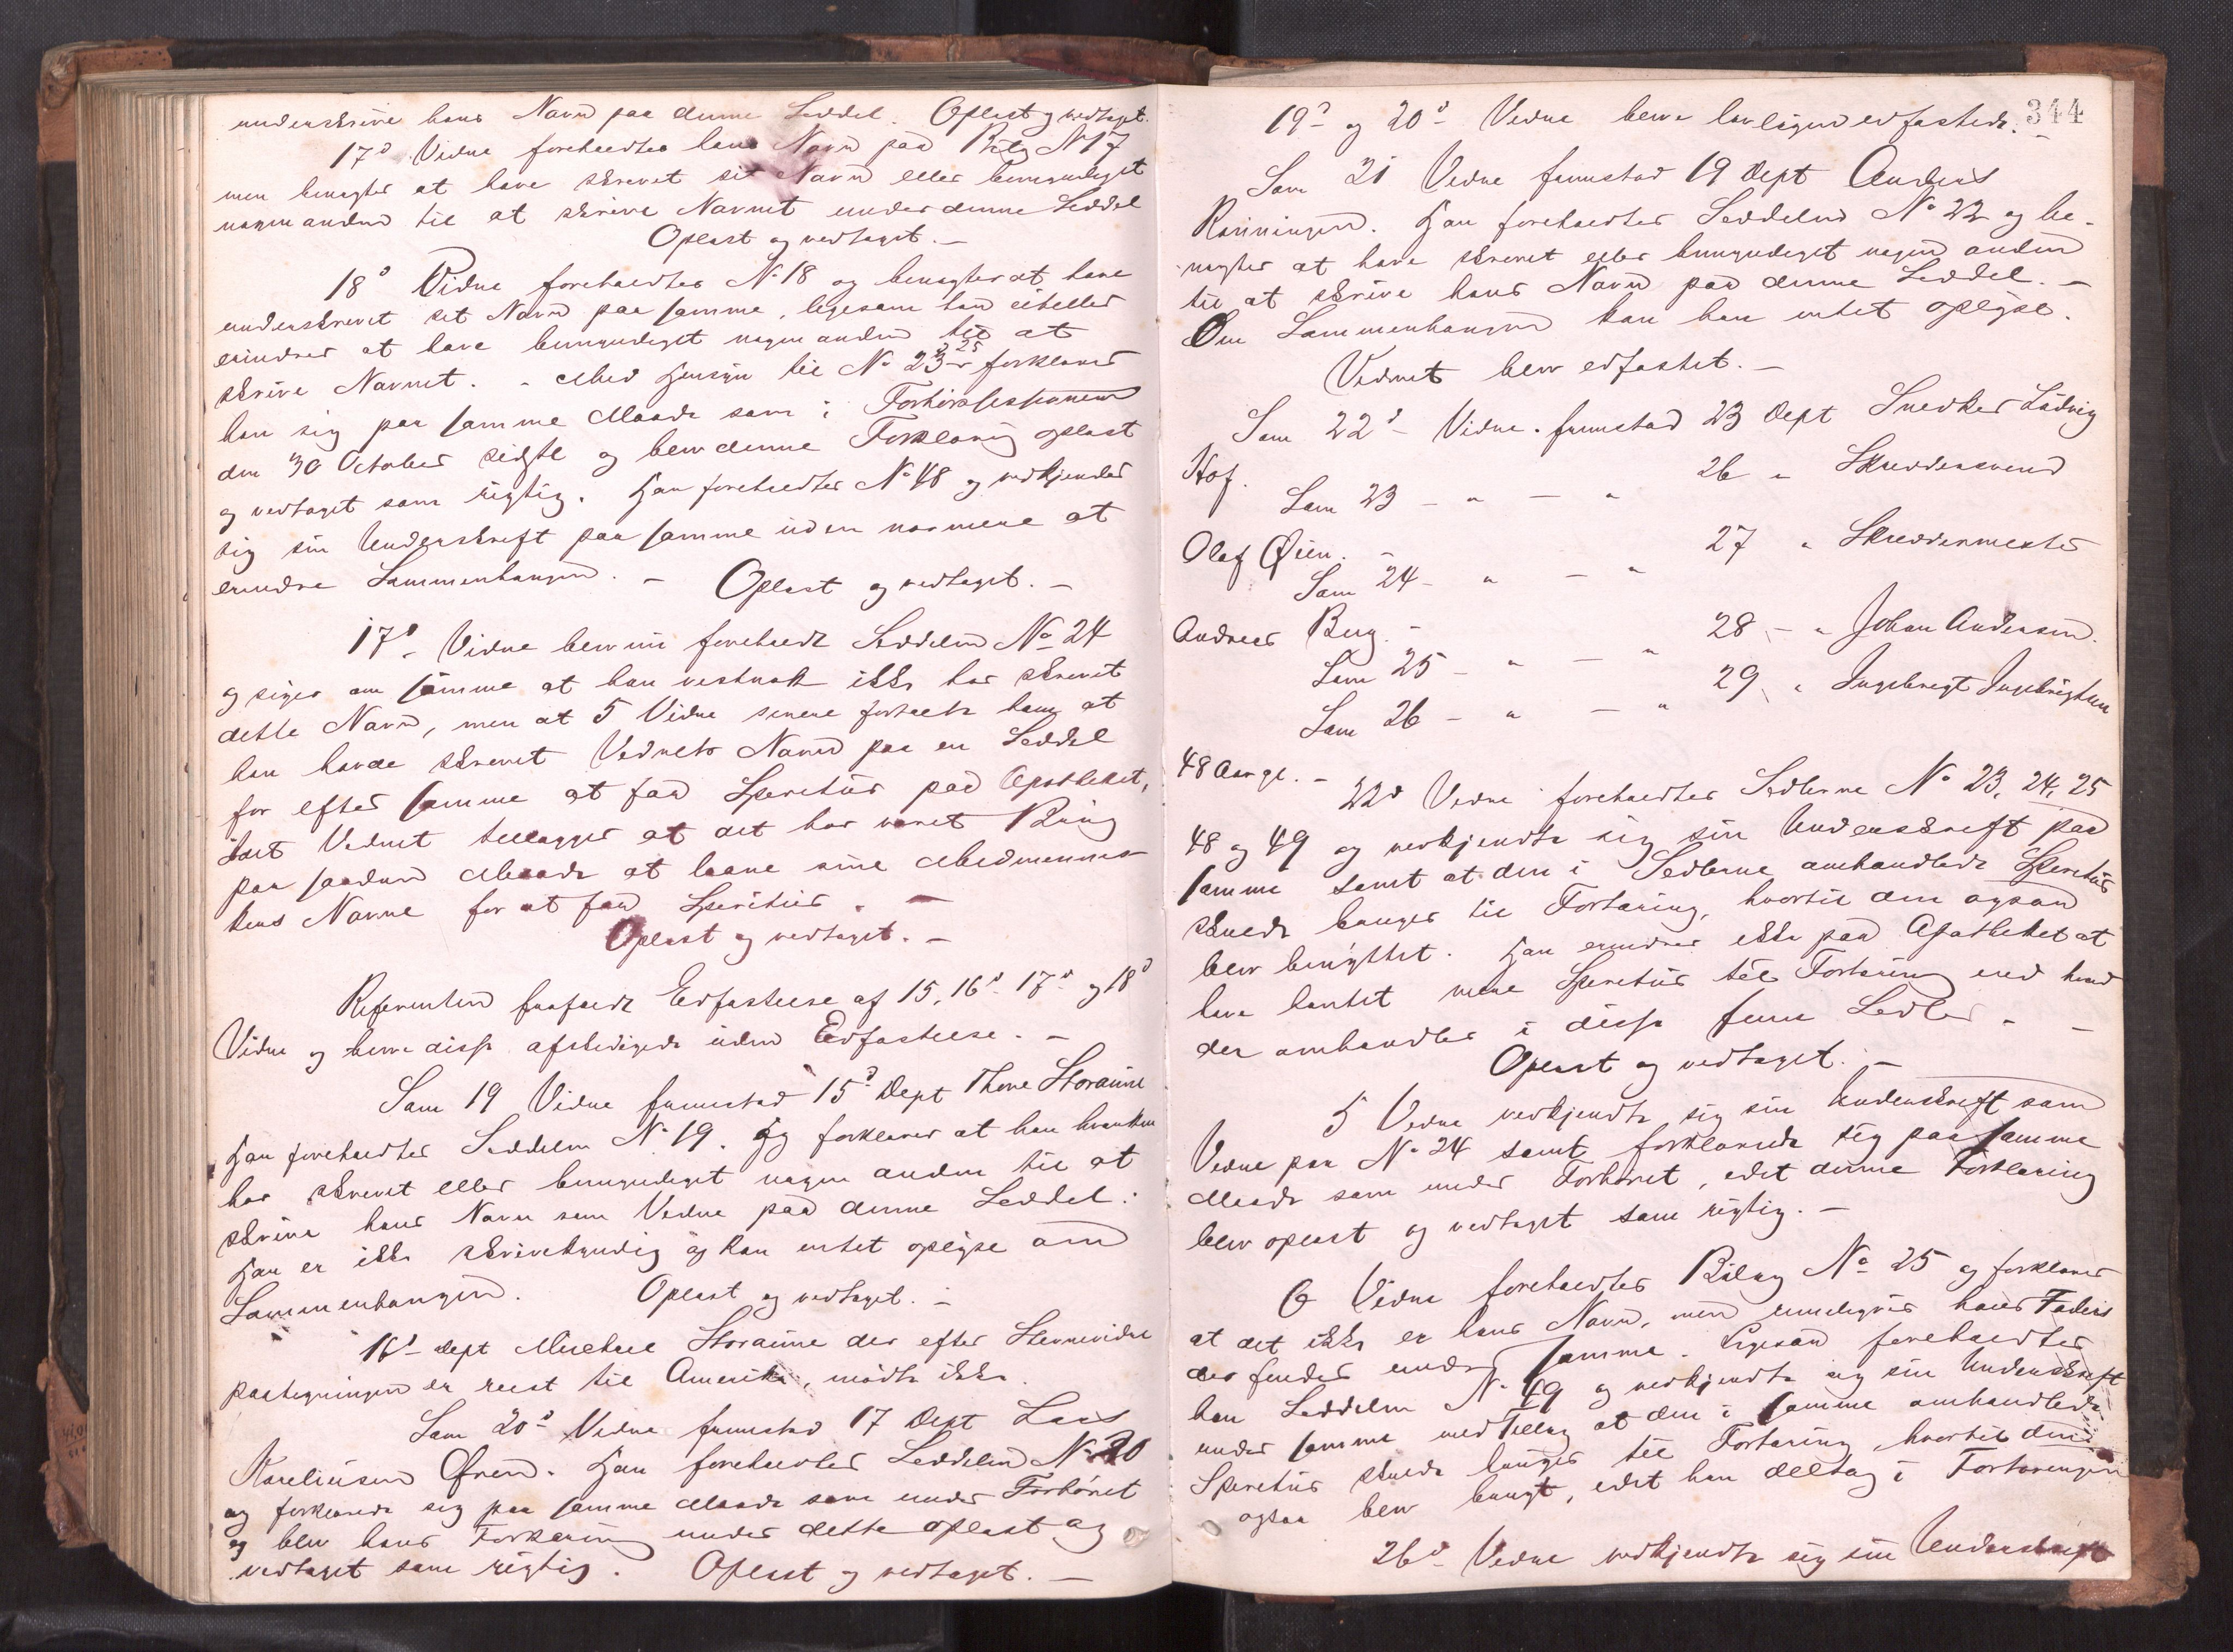 underskrive hans Navn paa denne Seddel. Oplæst og vedtaget.
17d Vidne foreholdtes hans Navn paa Bilag No 17
men benægter at have skrevet sit Navn eller bemyndiget
nogen anden til at skrive Navnet under denne Seddel
Oplæst og vedtaget. —
18d Vidne foreholdtes No 18 og benægter at have
underskrevet sit Navn paa samme, ligesom han eiheller
erindrer at have bemyndiget nogen anden til at
skrive Navnet. - Med Hensyn til No 23 - 25 forklarer
han sig paa samme Maade som i Forhørssessionen
den 30 October sidste og blev denne Forklaring oplæst
og vedtaget som rigtig. Han foreholdtes No 48 og vedkjender
sig sin Underskrift paa samme uden nærmere at
erindre Sammenhængen. — Oplæst og vedtaget. —
17d Vidne blev nu foreholdt Seddelen No 24
og siger om samme at han vistnok ikke har skrevet
dette Navn, men at 5 Vidne senere fortalte ham at
han havde skrevet Vidnets Navn paa en Seddel
for efter samme at faa Spiritus paa Apotheket,
idet Vidnet tillægger at det har været Brug
paa saadan Maade at laane sine Medmennes-
kers Navne for at faa Spiritus. —
Oplæst og vedtaget. —
Referenten frafaldt Edfæstelse af 15, 16d 17d og 18d
Vidne og bleve disse afskediget uden Edfæstelse. —
Som 19 Vidne fremstod 15d Dept Thore Storaune
Han foreholdtes Seddelen No 19. Og forklarer at han hverken
har skrevet eller bemyndiget nogen anden til at
skrive hans Navn som Vidne paa denne Seddel.
Han er ikke skrivekyndig og kan intet oplyse om
Sammenhængen. Oplæst og vedtaget. —
16d Dept Michael Storaune der efter Stevnevidne
paategningen er reist til Amerika, mødte ikke.
Som 20d Vidne fremstod 17 Dept Lars
Kareliusen Øren. Han foreholdtes Seddelen No 20
og forklarede sig paa samme Maade som under Forhøret
og blev hans Forklaring under dette oplæst og
vedtaget som rigtig. Oplæst og vedtaget. —
344
19d og 20d Vidne bleve lovligen edfæstede. —
Som 21 Vidne fremstod 19 Dept Anders
Rønningen. Han foreholdtes Seddelen No 22 og be-
nægter at have skrevet eller bemyndiget nogen anden
til at skrive hans Navn paa denne Seddel. —
Om Sammenhængen kan han intet oplyse.
Vidnet blev edfæstet. —
Som 22d Vidne fremstod 23 Dept Snedker Ludvig
Hof.
Som 23 — " — " 26 " Skreddersvend
Olaf Øien. —
Som 24 — " — " 27 " Skreddermester
Andreas Berg. —
Som 25 — " — " 28 — " Johan Andersen.
Som 26 — " — " 29 " Ingebrigt Ingebrigtsen
48 Aar gl. —
22d Vidne foreholdtes Sedlerne No 23, 24, 25
48 og 49 og vedkjendte sig sin Underskrift paa
samme samt at den i Sedlerne omhandlede Spiritus
skulde bruges til Fortæring, hvortil den ogsaa
blev benyttet. Han erindrer ikke paa Apotheket at
have hentet mere Spiritus til Fortæring end hvad
der omhandles i disse fem Sedler. —
Oplæst og vedtaget. —
5 Vidne vedkjendte sig sin Underskrift som
Vidne paa No 24 samt forklarede sig paa samme
Maade som under Forhøret, idet denne Forklaring
blev oplæst og vedtaget som rigtig. —
6 Vidne foreholdtes Bilag No 25 og forklarer
at det ikke er hans Navn, men rimeligvis hans Faders
der findes under samme. Ligesaa foreholdtes
han Seddelen No 49 og vedkjendte sig sin Underskrift
under samme med Tillæg at den i samme omhandlede
Spiritus skulde bruges til Fortæring, hvortil den
ogsaa blev brugt, idet han deltog i Fortæringen
26d Vidne vedkjendte sig sin Underskrift